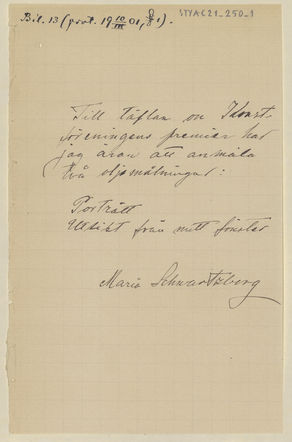 Bil. 13 (prot. 19 10/III 01, § 1).
STYAC21_250_1
Till täflan om Konst-
föreningens premier har
jag äran att anmäla
två oljemålningar:
Porträtt
Utsikt från mitt fönster
Maria Schwartzberg